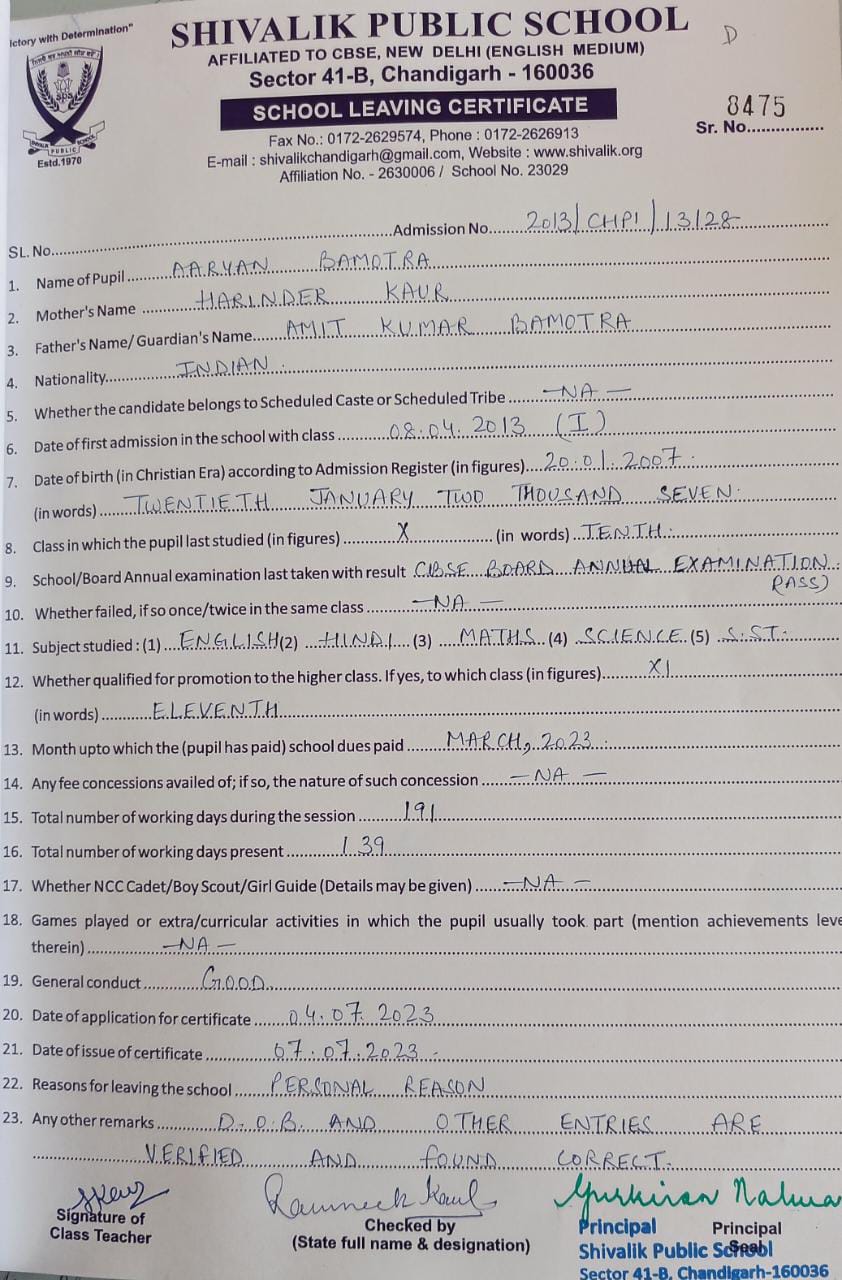 ictory with Determination"
SHIVALIK PUBLIC SCHOOL
D
AFFILIATED TO CBSE, NEW DELHI (ENGLISH MEDIUM)
Sector 41-B, Chandigarh - 160036
SCHOOL LEAVING CERTIFICATE
8475
Sr. No...............
Fax No.: 0172-2629574, Phone : 0172-2626913
E-mail : shivalikchandigarh@gmail.com, Website : www.shivalik.org
Affiliation No. - 2630006 / School No. 23029
SPS
SHIVALIK PUBLIC SCHOOL
Estd.1970
SL. No. Admission No. 2013/CHPI/13128
1. Name of Pupil AARYAN BAMOTRA
2. Mother's Name HARINDER KAUR
3. Father's Name/ Guardian's Name AMIT KUMAR BAMOTRA
4. Nationality INDIAN.
5. Whether the candidate belongs to Scheduled Caste or Scheduled Tribe —NA—
6. Date of first admission in the school with class 08.04.2013 (I)
7. Date of birth (in Christian Era) according to Admission Register (in figures) 20.01.2007.
(in words) TWENTIETH JANUARY TWO THOUSAND SEVEN.
8. Class in which the pupil last studied (in figures) X (in words) TENTH.
9. School/Board Annual examination last taken with result CBSE BOARD ANNUAL EXAMINATION.
PASS)
10. Whether failed, if so once/twice in the same class —NA—
11. Subject studied : (1) ENGLISH (2) HINDI (3) MATHS (4) SCIENCE (5) S.ST.
12. Whether qualified for promotion to the higher class. If yes, to which class (in figures) XI
(in words) ELEVENTH
13. Month upto which the (pupil has paid) school dues paid MARCH, 2023.
14. Any fee concessions availed of; if so, the nature of such concession —NA—
15. Total number of working days during the session 191
16. Total number of working days present 139
17. Whether NCC Cadet/Boy Scout/Girl Guide (Details may be given) —NA—
18. Games played or extra/curricular activities in which the pupil usually took part (mention achievements leve
therein) —NA—
19. General conduct GOOD.
20. Date of application for certificate 04.07.2023
21. Date of issue of certificate 07.07.2023.
22. Reasons for leaving the school PERSONAL REASON
23. Any other remarks D.O.B. AND OTHER ENTRIES ARE
VERIFIED AND FOUND CORRECT.
Ramneek Kaul Gurkiran Nalwa
Signature of
Class Teacher
Checked by
(State full name & designation)
Principal
Seal
Principal
Shivalik Public School
Sector 41-B, Chandigarh-160036